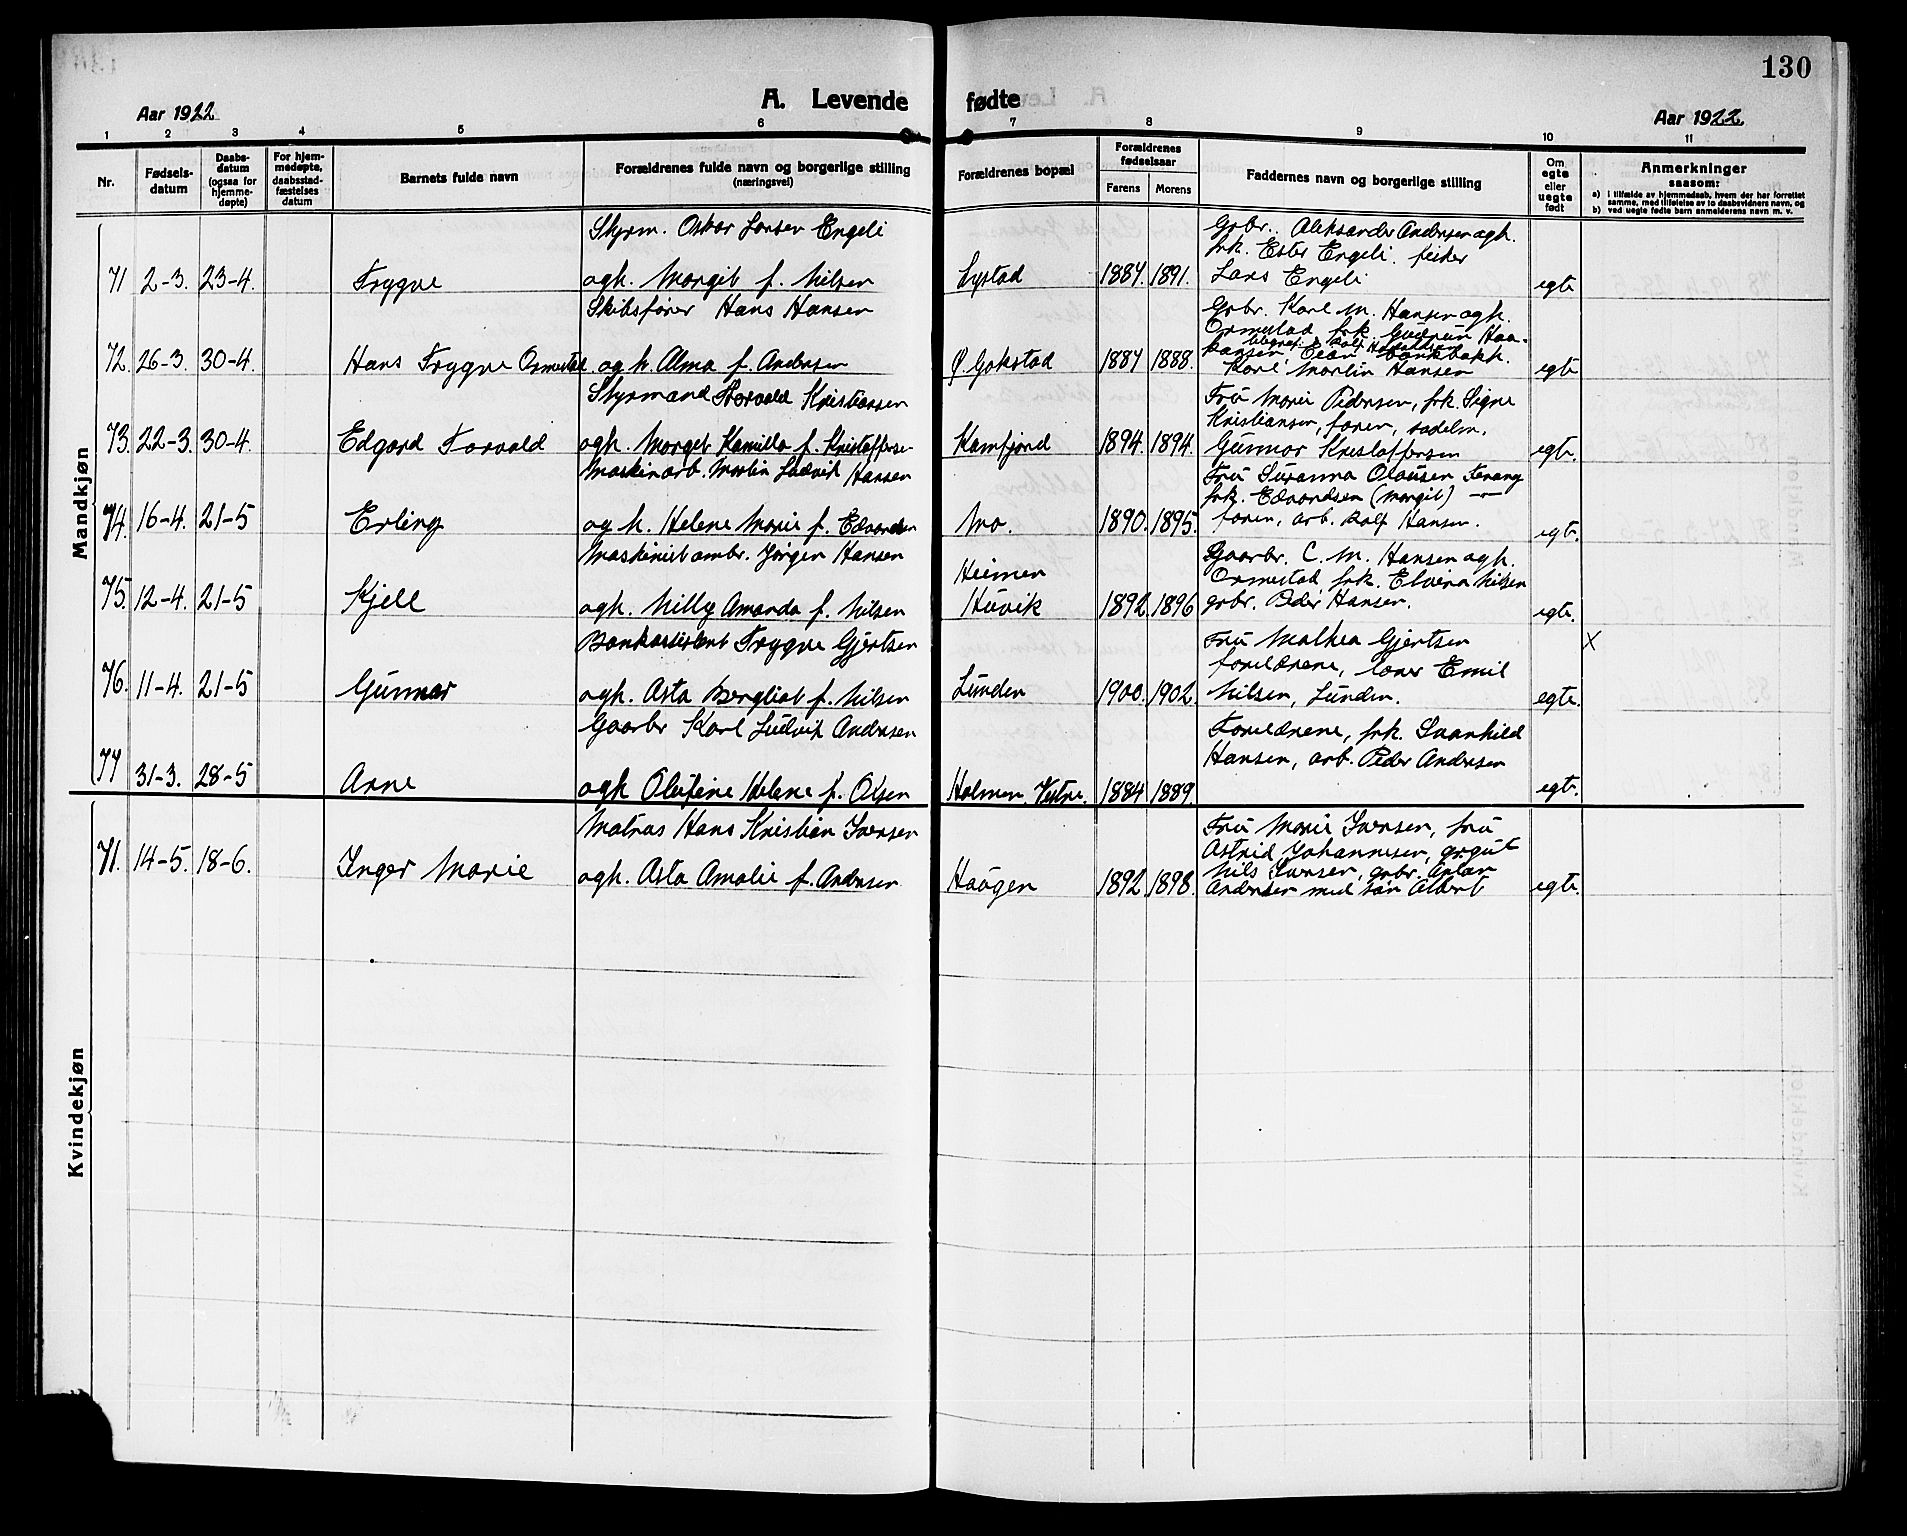 130
Aar 1922
A. Levende fødte
Aar 1922.
1 2 3 4 5 6 7 8 9 10 11
Nr.
Fødsels-
datum
Daabs-
datum
(ogsaa for
hjemme-
døpte)
For hjem-
medøpte,
daabsstad-
fæstelses
datum
Barnets fulde navn
Forældrenes fulde navn og borgerlige stilling
(næringsvei)
Forældrenes bopæl
Forældrenes
fødselsaar
Farens Morens
Faddernes navn og borgerlige stilling
Om
egte
eller
uegte
født
Anmerkninger
saasom:
a) i tilfælde av hjemmedaab, hvem der har forrettet
samme, med tilføielse av to daabsvidners navn, og
b) ved uegte fødte barn anmelderens navn m. v.
Mandkjøn
Styrm. Oskar Larsen Engeli
71 2-3. 23-4. Trygve agh. Margit f. Nilsen Lystad 1887 1891.
Grbr. Aleksander Andersen agh.
frk. Ester Engeli. feier
Lars Engeli
egte
Skibsfører Hans Hansen
72. 26-3. 30-4. Hans Trygve Ormestad og h. Alma f. Andersen Ø Gokstad 1887 1888.
Grbr. Karl M. Hansen agh.
Ormestad frk. Gudrun Haa-
kansen, bankbokh.
Karl Martin Hansen
egte
Styrmand Torvald Kristiansen
73. 22-3. 30-4. Edgard Torvald agh. Marget Kamilla f. Kristoffersen Kamfjord 1894. 1894.
Fru Marie Pedersen, frk. Signe
Kristiansen, faren, sadelm.
Gunnar Kristoffersen
egte.
Maskinarb. Martin Ludvik Hansen
74. 16-4. 21-5 Erling og h. Helene Marie f. Edvardsen Mo. 1890. 1895.
Fru Susanna Olausen Tenang
frk. Edvardsen (Margit) —
faren, arb. Ralf Hansen.
egte.
Maskinistambr. Jørgen Hansen
75. 12-4. 21-5 Kjell agh. Milly Amanda f. Nilsen
Heimen
Huvik 1892. 1896
Gaarbr. C. M. Hansen agh.
Ormestad frk. Elvina Nilsen
grbr. Peder Hansen.
egte.
Bankassistent Trygve Gjertsen
76. 11-4. 21-5 Gunnar agh. Asta Bergliot f. Nilsen Lunden 1900. 1902.
Fru Mathea Gjertsen
forældrene, laner Emil
Nilsen, Lunden.
egte. X
Gaarbr Karl Ludvik Andersen
77 31-3. 28-5 Arne agh Olufine Helene f. Olsen Holmen, Vestre. 1884 1889.
Forældrene, frk. Svanhild
Hansen, arb. Peder Andersen
egte.
Kvindekjøn
Matros Hans Kristian Iversen
71. 14-5. 18-6. Inger Marie agh. Asta Amalie f. Andersen Haugen 1892. 1898.
Fru Marie Iversen, fru
Astrid Johannesen, grgut
Nils Iversen, grbr. Anton
Andersen med søn Albert
egte.